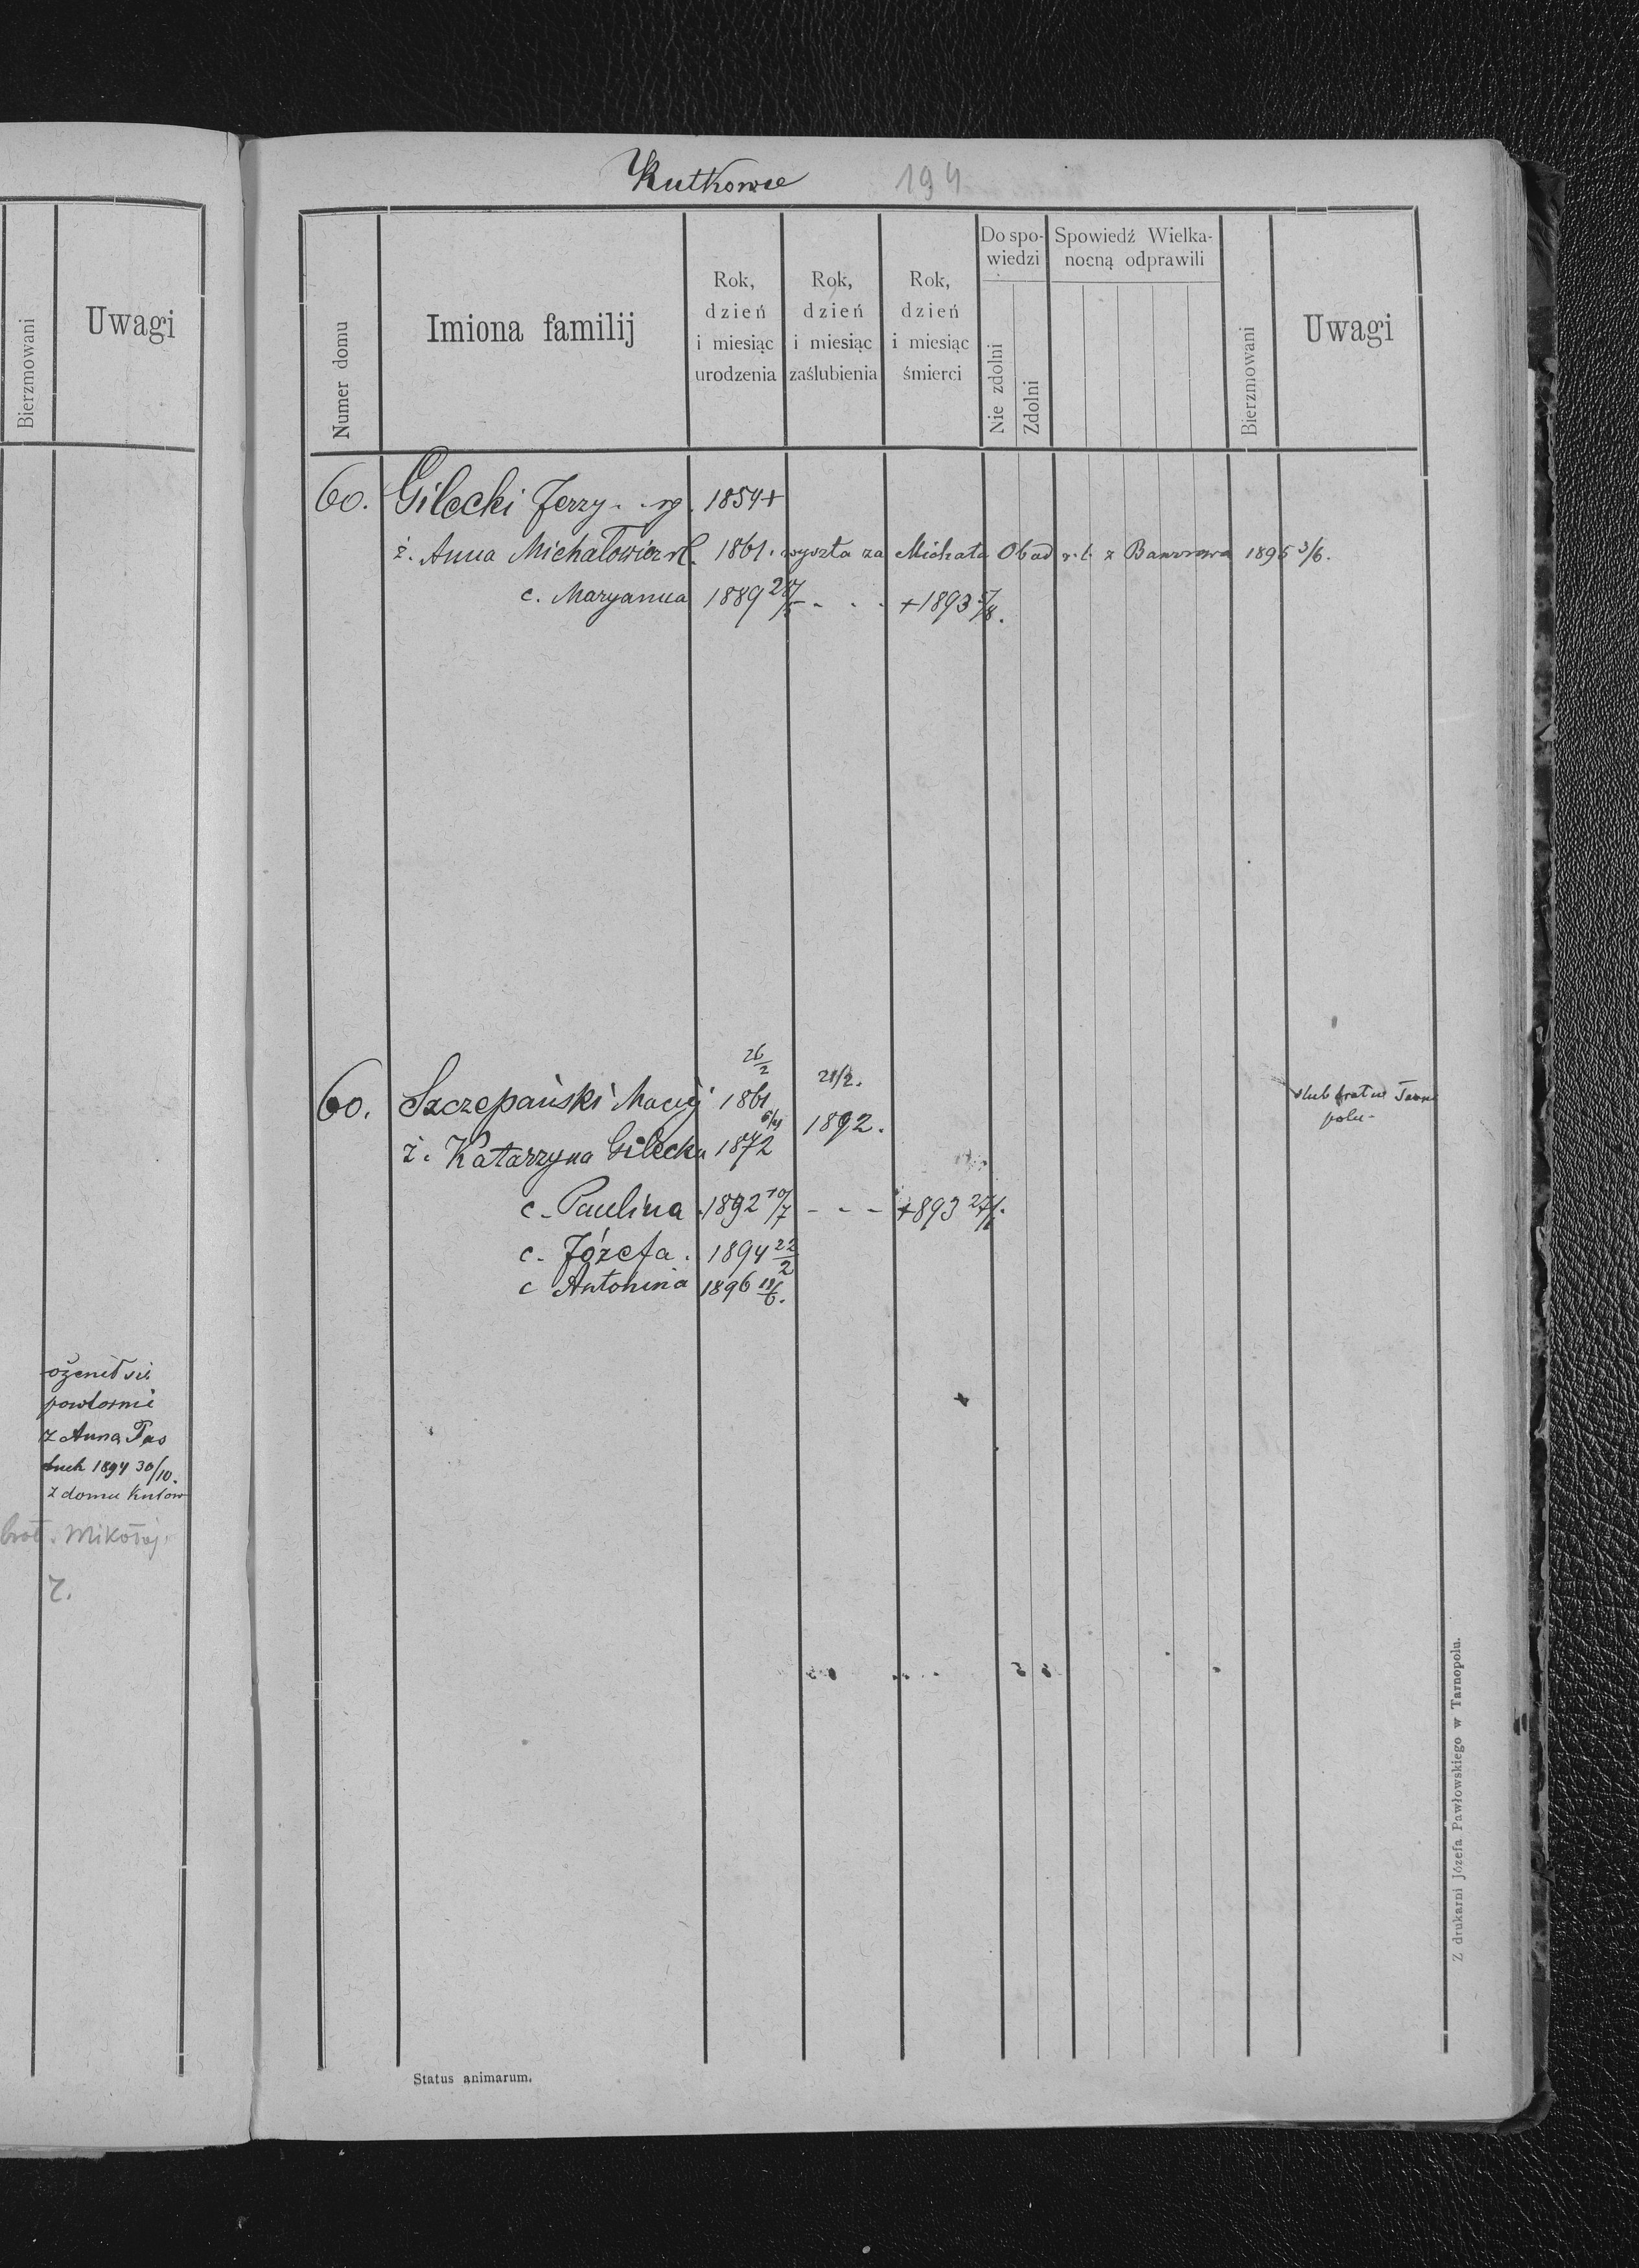 Bierzmowani
Uwagi
ożenił się
powtórnie
z Anną Pas
tuch 1894 30/10.
z domu
brat. Mikołaj
Kutkowce 194
Numer domu
Imiona familij
Rok, dzień i miesiąc urodzenia
Rok, dzień i miesiąc zaślubienia
Rok, dzień i miesiąc śmierci
Do spowiedzi
Nie zdolni
Zdolni
Spowiedź Wielkanocną odprawili
Bierzmowani
Uwagi
60. Gilecki Jerzy 1854 +
ż. Anna Michałowicz 1861. wyszła za Michała Obad z 1895 3/6.
c. Maryanna 1889 - - - +1893
60. Szczepański Maciej 26/2 1861 21/2. 1892. ślub brał w Tarno
polu-
ż. Katarzyna Gilecka 1872
c. Paulina 1892 10/7 - - - +893
c. Józefa. 1894 22/2
c Antonina 1896
Status animarum.
Z drukarni Józefa Pawłowskiego w Tarnopolu.